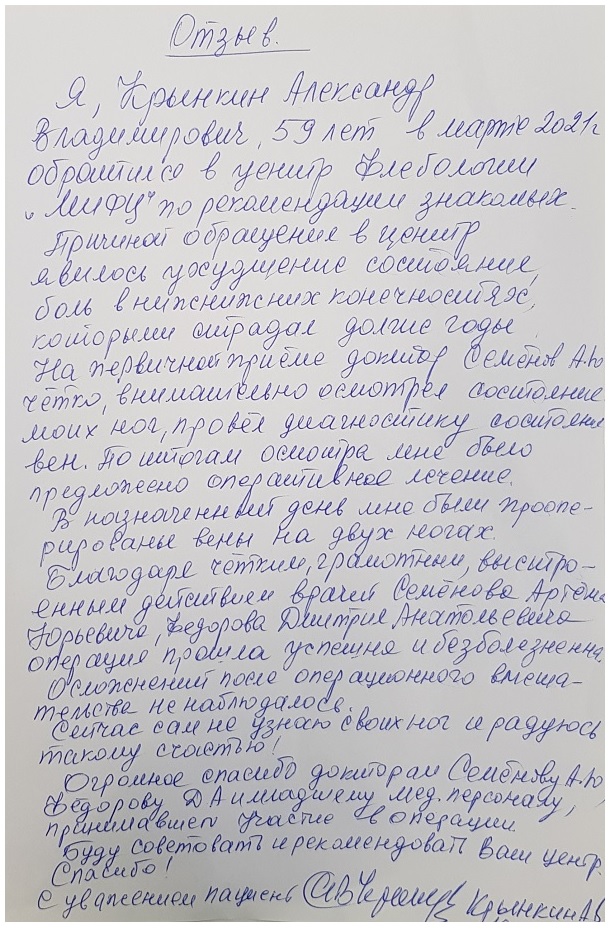 Отзыв.
Я, Крынкин Александр
Владимирович, 59 лет в марте 2021г
обратился в центр Флебологии
"МИФЦ" по рекомендации знакомых.
Причиной обращения в центр
явилось ухудшение состояние,
боль в нижнижних конечностях,
которыми страдал долгие годы.
На первичной приёме доктор Семёнов А.Ю
чётко, внимательно осмотрел состояние
моих ног, провёл диагностику состояния
вен. По итогам осмотра мне было
предложено оперативное лечение.
В назначенный день мне были проопе-
рированы вены на двух ногах.
Благодаря чётким, грамотным, выстро-
енным действием врачей Семёнова Артёма
Юрьевича, Федорова Дмитрия Анатольевича
операция прошла успешно и безболезненна
Осложнений после операционного вмеша-
тельства не наблюдалось.
Сейчас сам не узнаю своих ног и радуюсь
такому счастью!
Огромное спасибо докторам Семёнову А.Ю,
Фёдорову Д А и младшему мед. персоналу,
принимавшем участие в операции.
Буду советовать и рекомендовать Ваш центр.
Спасибо!
С уважением пациент Крынкин АВ